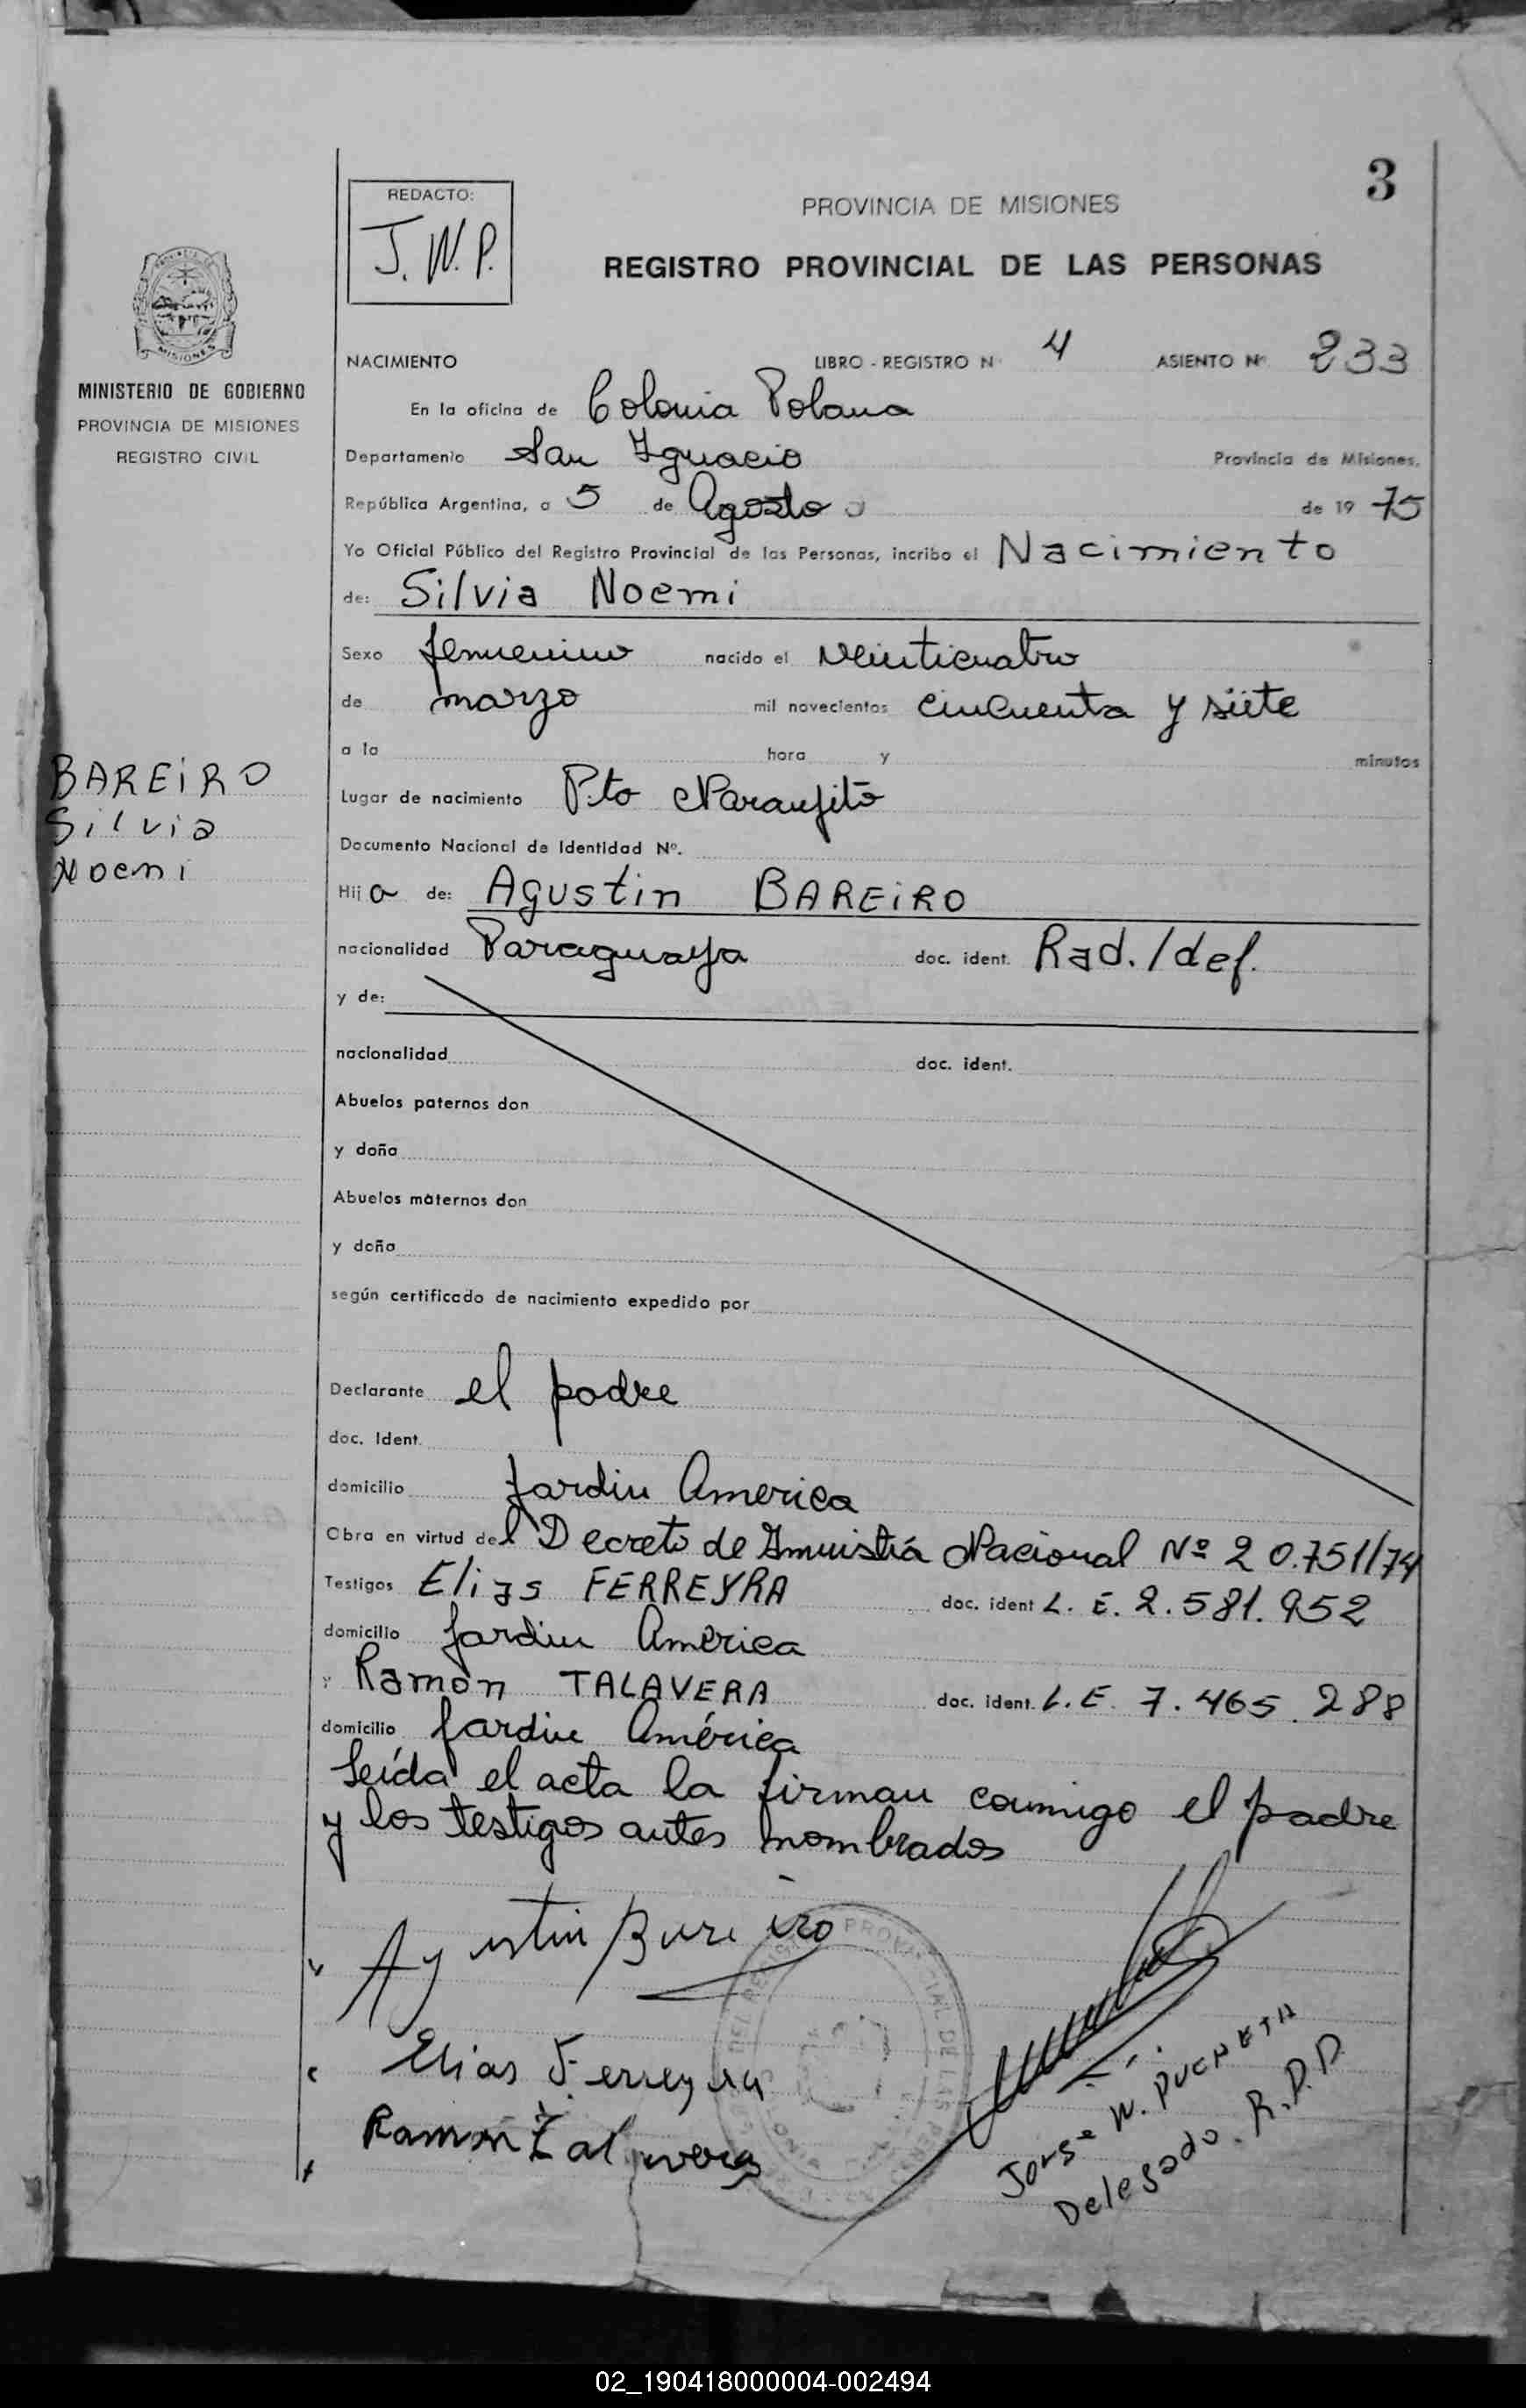 3
REDACTO:
J.W.P.
PROVINCIA DE MISIONES
REGISTRO PROVINCIAL DE LAS PERSONAS
MISIONES
MINISTERIO DE GOBIERNO
PROVINCIA DE MISIONES
REGISTRO CIVIL
BAREIRO
Silvia
Noemi
NACIMIENTO LIBRO - REGISTRO Nº 4 ASIENTO Nº 233
En la oficina de Colonia Polana
Departamento San Ignacio Provincia de Misiones.
República Argentina, a 5 de Agosto de 19 75
Yo Oficial Público del Registro Provincial de las Personas, incribo el Nacimiento
de: Silvia Noemi
Sexo femenino nacido el veinticuatro
de marzo mil novecientos cincuenta y siete
a la hora y minutos
Lugar de nacimiento Pto Naranjito
Documento Nacional de Identidad Nº.
Hija de: Agustin BAREIRO
nacionalidad Paraguaya doc. ident. Rad./def.
y de:
nacionalidad doc. ident.
Abuelos paternos don
y doña
Abuelos maternos don
y doña
según certificado de nacimiento expedido por
Declarante el padre
doc. Ident.
domicilio Jardin America
Obra en virtud del Decreto de Amnistía Nacional Nº 20.751/74
Testigos Elias FERREYRA doc. ident L. E. 2.581.952
domicilio Jardin América
y Ramón TALAVERA doc. ident. L.E. 7.465.288
domicilio Jardin América
Leída el acta la firman conmigo el padre
y los testigos antes nombrados
Agustin Bareiro
Elias Ferreyra
Ramon Talavera
Jorge W. PUCHETA
Delegado. R.P.P.
02_190418000004-002494